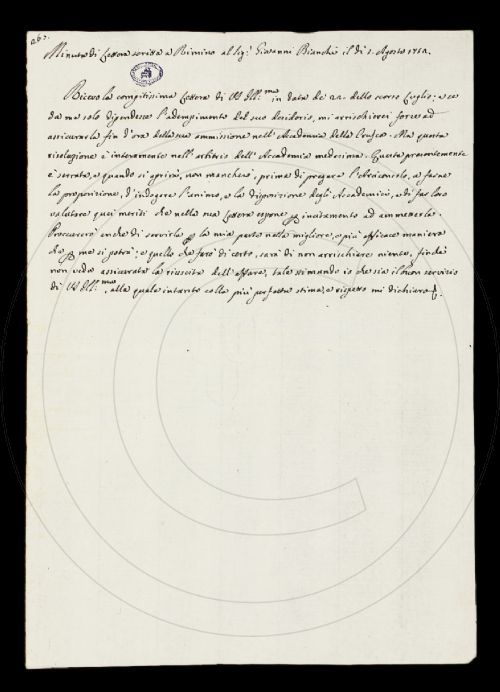 265.
Minuta di Lettera scritta a Rimino al Sig.r Giovanni Bianchi il dì 1. Agosto 1752.
Ricevo la compitissima Lettera di VS Ill.ma in data de' 22. dello scorso Luglio; e se
da me solo dipendesse l'adempimento del suo desiderio, mi arrischierei forse ad
assicurarla fin d'ora della sua ammissione nell'Accademia della Crusca. Ma questa
risoluzione è interamente nell'arbitrio dell'Accademia medesima. Questa presentemente
è serrata, e quando si aprirà, non mancherò, prima di pregare l'Arciconsolo, a farne
la proposizione, d'indagare l'animo, e la disposizione degli Accademici, e di far loro
valutare quei meriti che nella sua Lettera espone per incitamento ad ammetterla.
Proccurerò anche di servirla per la mia parte nella migliore, e più efficace maniera
che per me si potrà; e quello che farò di certo, sarà di non arrischiare niente, finchè
non veda assicurata la riuscita dell'affare, tale stimando io che sia il buon servizio
di VS Ill.ma, alla quale intanto colla più perfetta stima, e rispetto mi dichiaro